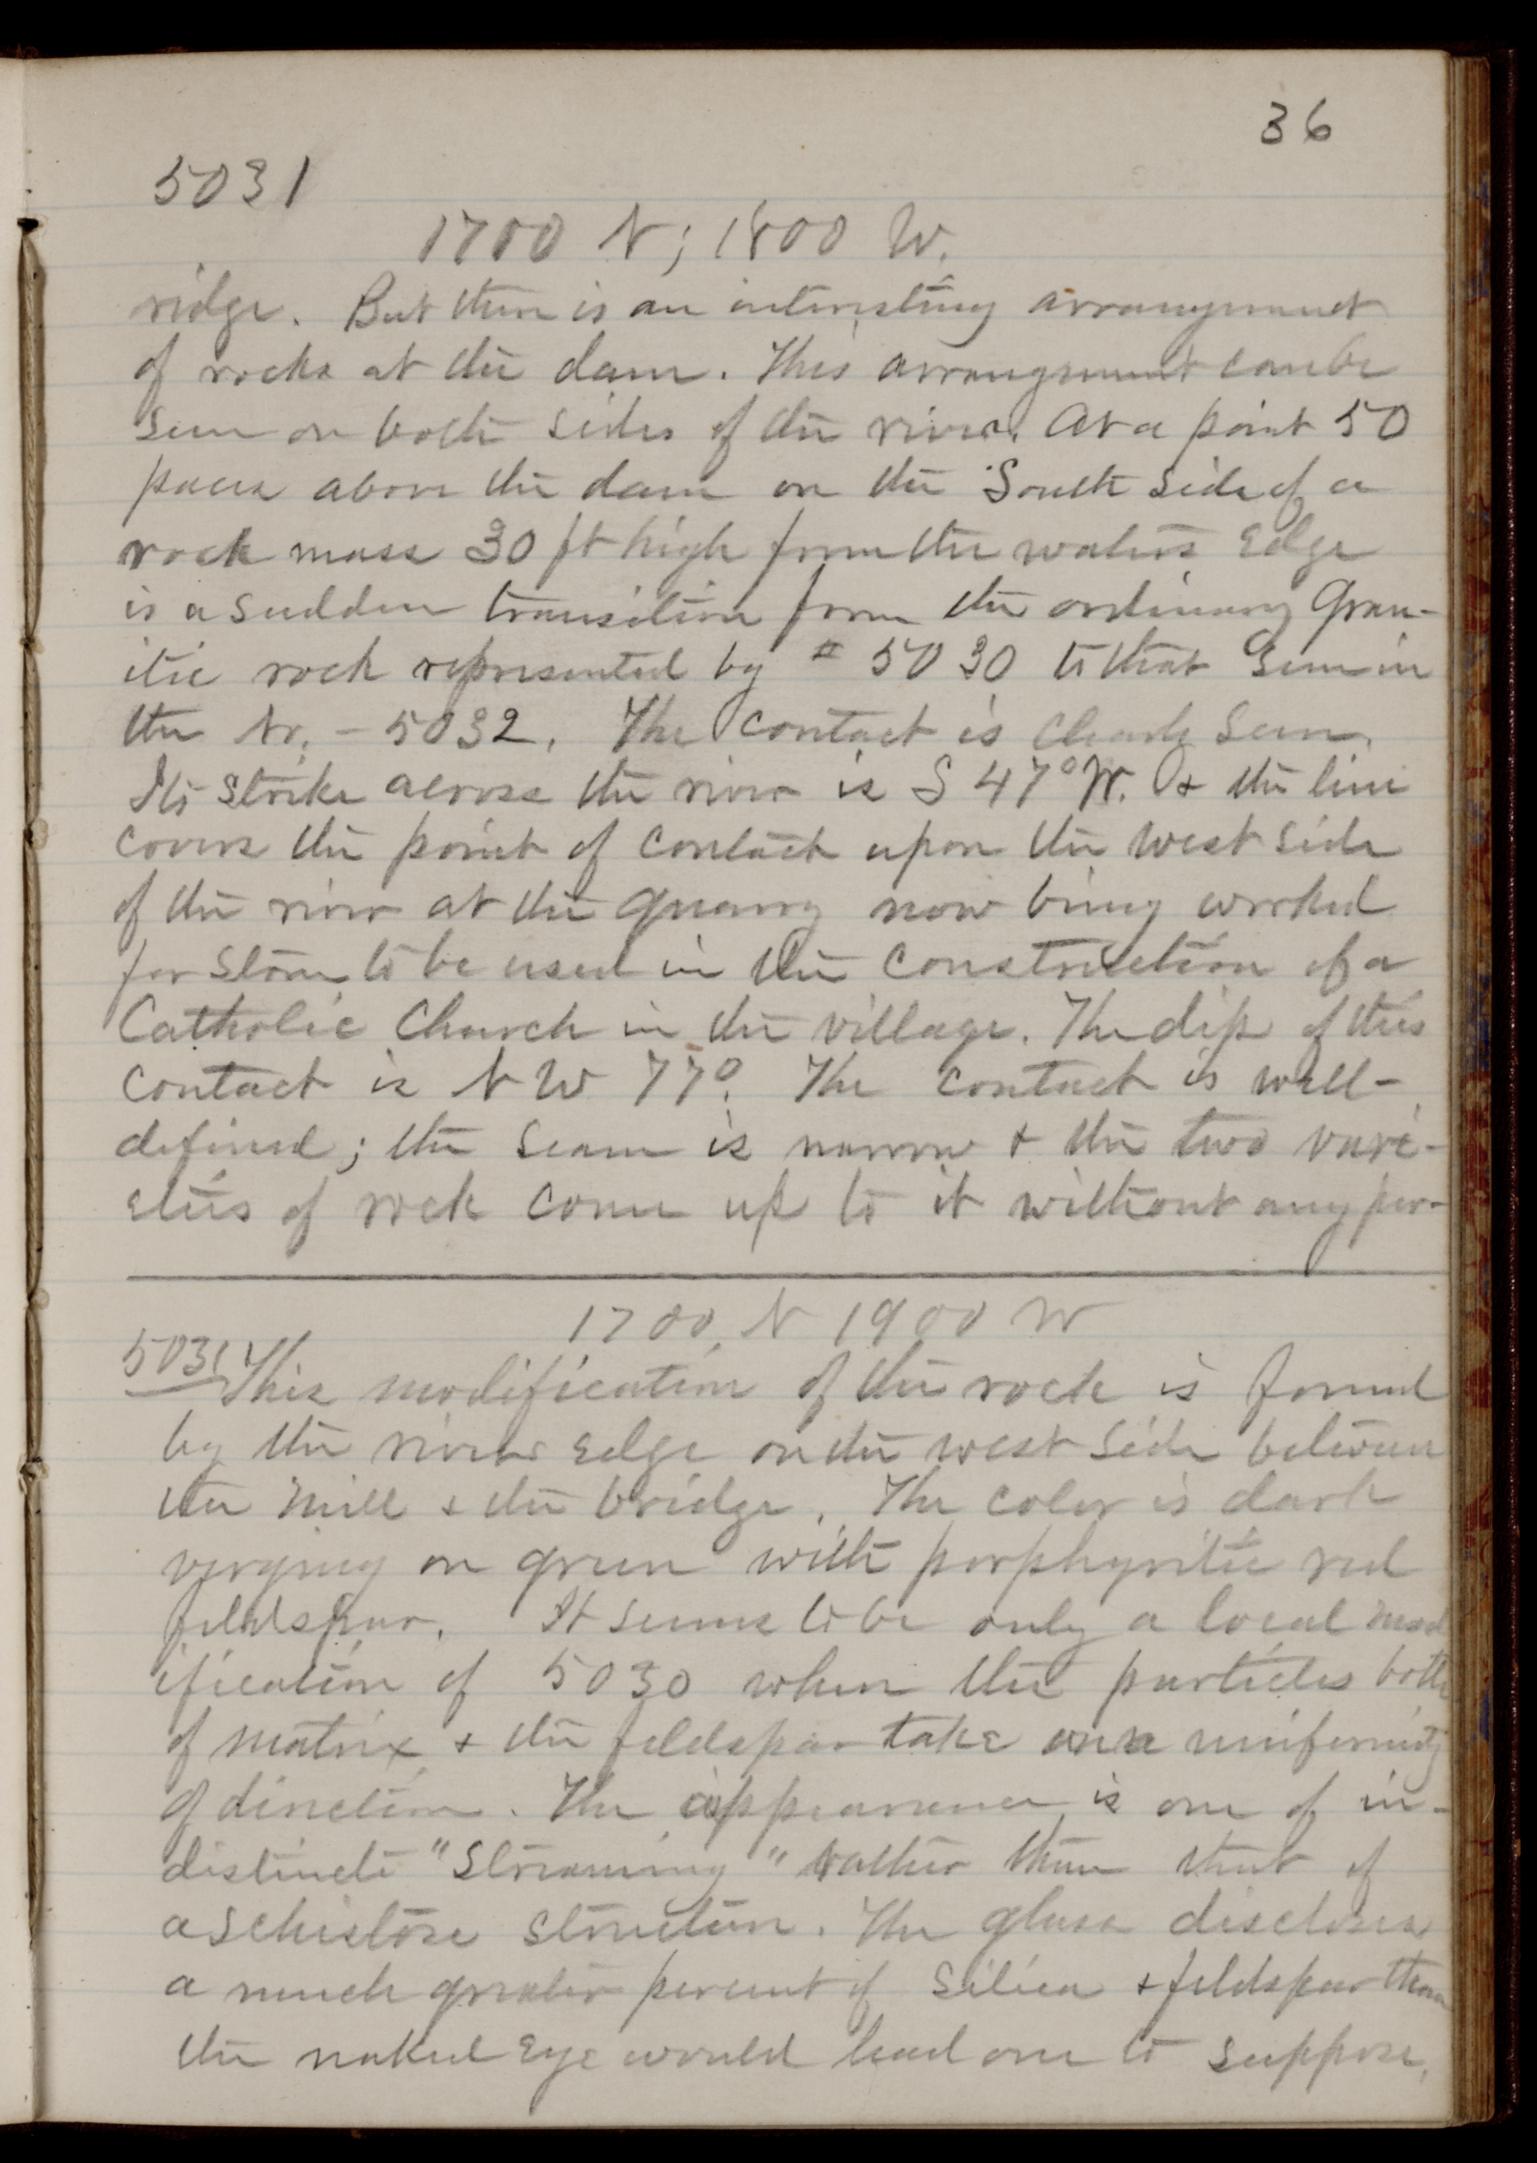 36
5031
1700 N; 1800 W.
ridge. But there is an interesting arrangement
of rocks at the dam. This arrangement can be
seen on both sides of the river. At a point 50
paces above the dam on the South side of a
rock mass 30 ft high from the waters edge
is a sudden transition from the ordinary gran-
itic rock represented by # 5030 to that seen in
the No. - 5032. The contact is clearly seen.
Its strike across the river is S 47° W. & the line
covers the point of contact upon the west side
of the river at the quarry now being worked
for stone to be used in the construction of a
Catholic Church in the village. The dip of this
contact is N W 77°. The contact is well-
defined; the seam is narrow & the two vari-
eties of rock come up to it without any per-
1700 N 1900 W
5031 This modification of the rock is found
by the rivers edge on the west side between
the mill & the bridge. The color is dark
verging on green with porphyritic red
feldspar. It seems to be only a local mod
ification of 5030 when the particles both
of matrix & the feldspar take on a uniformity
of direction. The appearance is one of in-
distinct "streaming" rather than that of
a schistose structure. The glass discloses
a much greater percent of silica & feldspar than
the naked eye would lead one to suppose.